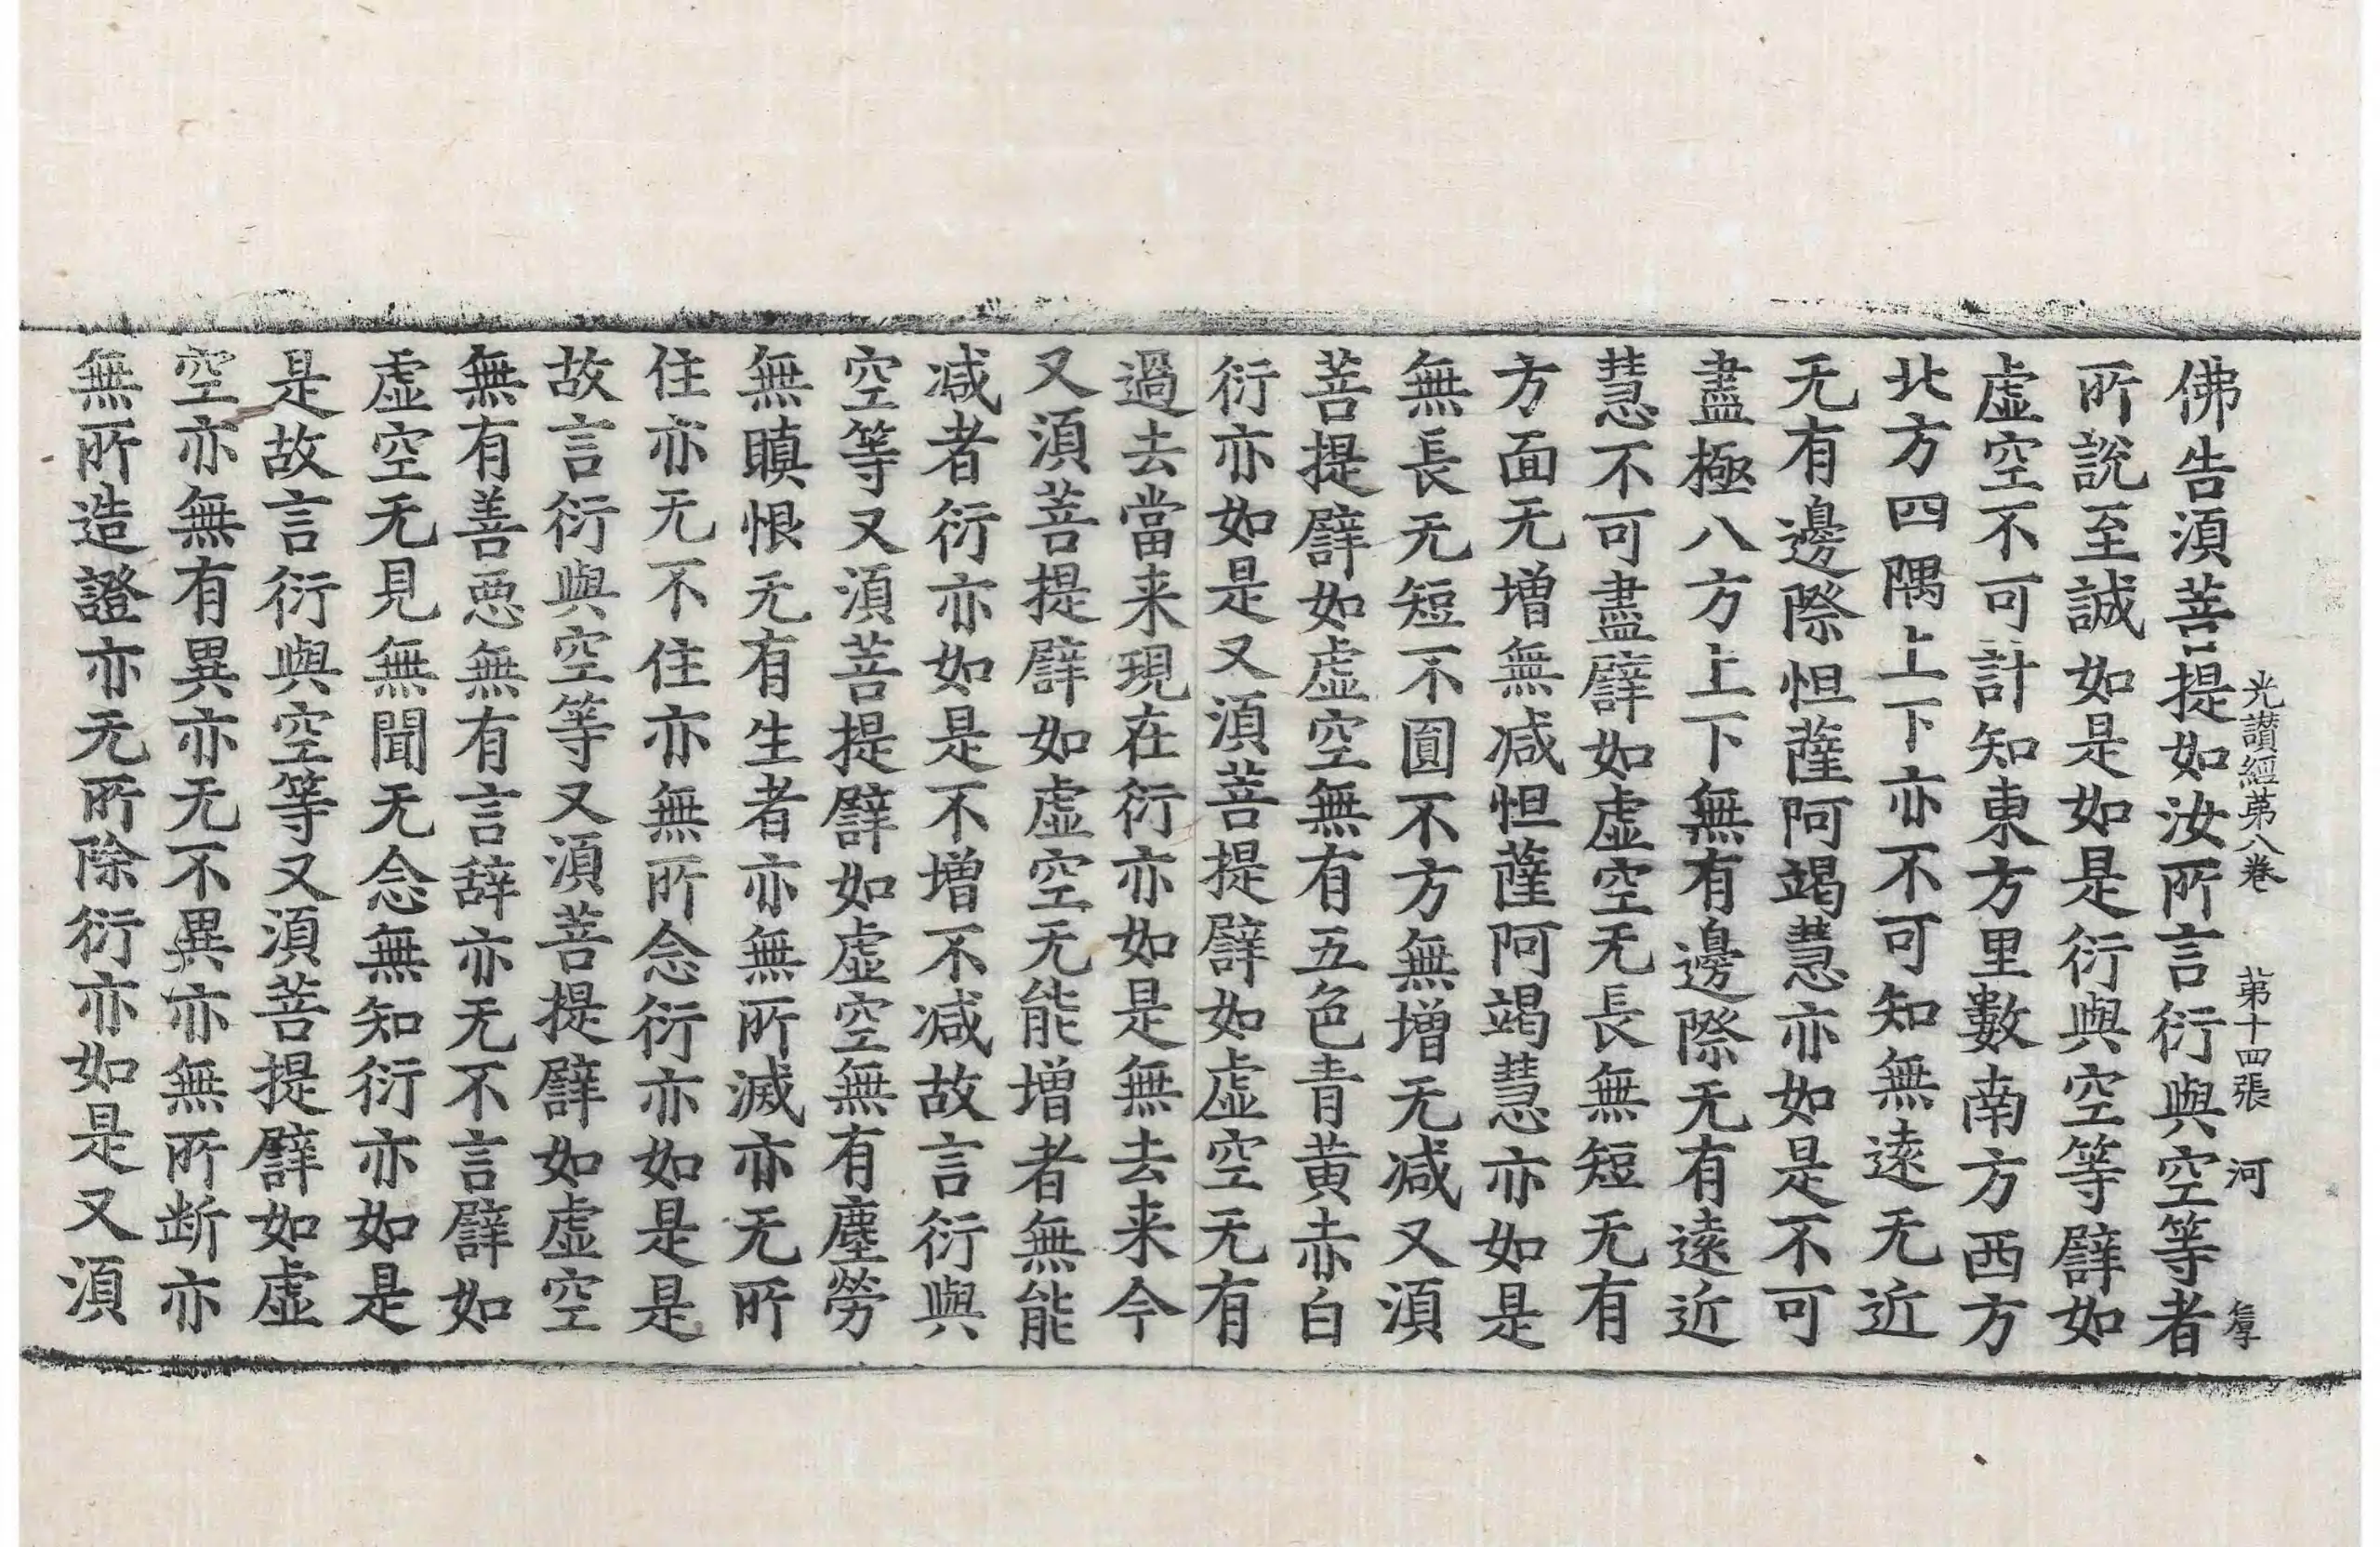 光讃經苐八卷 苐十四張 河
佛告湏菩提如汝所言衍與空等者
所說至誠如是如是衍與空等譬如
虛空不可計知東方里數南方西方
北方四隅上下亦不可知無逺无近
无有邊際怛薩阿竭慧亦如是不可
盡極八方上下無有邊際无有逺近
慧不可盡譬如虛空无長無短无有
方面无增無减怛薩阿竭慧亦如是
無長无短不圓不方無增无减又湏
菩提譬如虛空無有五色青黃赤白
衍亦如是又湏菩提譬如虛空无有
過去當来現在衍亦如是無去来今
又湏菩提譬如虛空无能增者無能
减者衍亦如是不增不减故言衍與
空等又湏菩提譬如虛空無有塵勞
無瞋恨无有生者亦無所滅亦无所
住亦无不住亦無所念衍亦如是是
故言衍與空等又湏菩提譬如虛空
無有善惡無有言辞亦无不言譬如
虛空无見無聞无念無知衍亦如是
是故言衍與空等又湏菩提譬如虛
空亦無有異亦无不異亦無所斷亦
無所造證亦无所除衍亦如是又湏